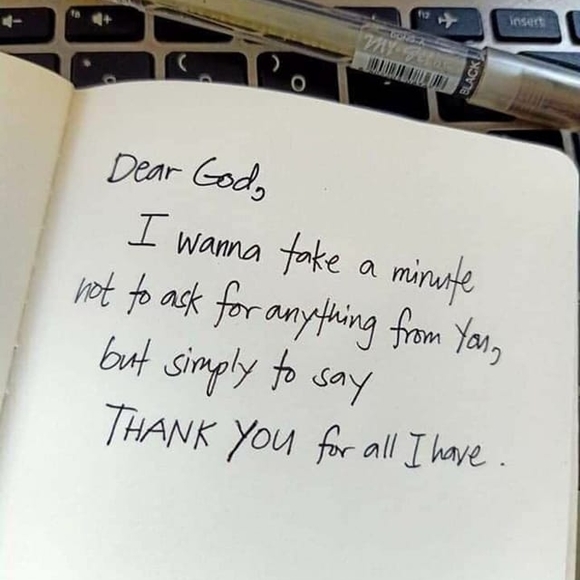 f8
f12
insert
BLACK
Dear God,
I wanna take a minute
not to ask for anything from You,
but simply to say
THANK YOU for all I have.